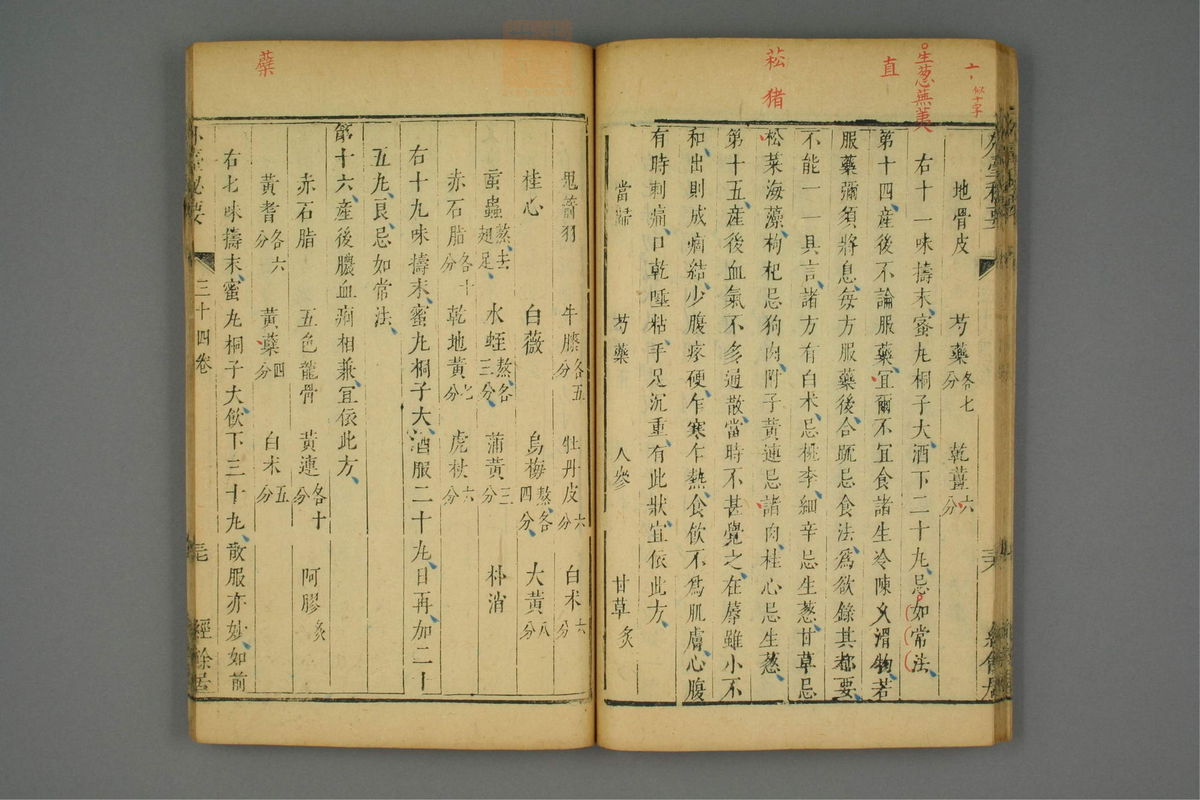 十、似十字
生葱蕪荑
直
菘
猪
地骨皮 芍藥各七分 乾薑六分
右十一味擣末蜜丸桐子大酒下二十九忌如常法
第十四產後不論服藥宜爾不宜食諸生冷陳久滑物若
服藥彌須將息每方服藥後合䟽忌食法爲欲錄其都要
不能一一具言諸方有白术忌桃李細辛忌生葱甘草忌
松菜海藻枸杞忌狗肉附子黃連忌諸肉桂心忌生葱
第十五產後血氣不多通散當時不甚覺之在蓐雖小不
和出則成痼結少腹疼硬乍寒乍熱食飲不爲肌膚心腹
有時刺痛口乾唾粘手足沉重有此狀宜依此方
當歸 芍藥 人參 甘草炙
鬼箭羽 牛膝各五分 牡丹皮六分 白术六分
桂心 白薇 烏梅熬各四分 大黃八分
䖟蟲熬去翅足 水蛭熬各三分 蒲黃三分 朴消
赤石脂各十分 乾地黃七分 虎杖六分
右十九味擣末蜜丸桐子大酒服二十九日再加二十
五丸良忌如常法
第十六產後膿血痢相兼宜依此方
赤石脂 五色龍骨 黃連各十分 阿膠炙
黃耆各六分 黃蘗四分 白术五分
右七味擣末蜜丸桐子大飲下三十丸散服亦妙如前
蘗
外臺秘要 三十四卷 經餘居